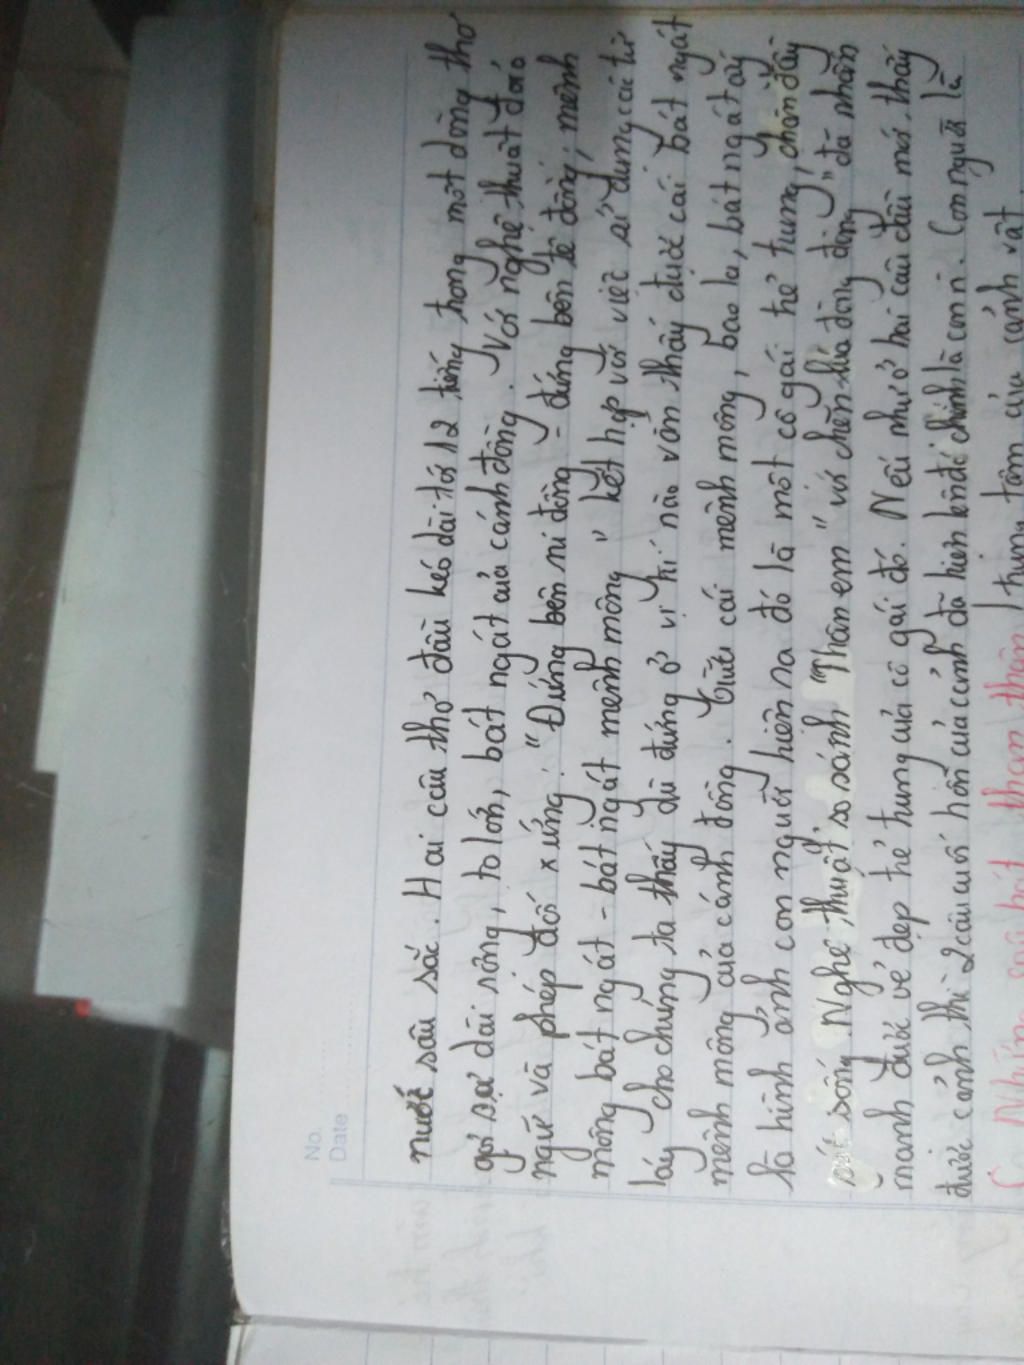 No.
Date
nước sâu sắc. Hai câu thơ đầu kéo dài tới 12 tiếng trong một dòng thơ
gợi sự dài rộng, to lớn, bát ngát của cánh đồng. Với nghệ thuật đảo
ngữ và phép đối xứng. "Đứng bên ni đồng - đứng bên tê đồng, mênh
mông bát ngát - bát ngát mênh mông" kết hợp với việc sử dụng các từ
láy cho chúng ta thấy dù đứng ở vị trí nào vẫn thấy được cái bát ngát
mênh mông của cánh đồng. Trước cái mênh mông, bao la, bát ngát ấy
là hình ảnh con người hiện ra đó là một cô gái trẻ trung, tràn đầy
sức sống. Nghệ thuật so sánh "Thân em" với chẽn lúa đòng đòng" đã nhấn
mạnh được vẻ đẹp trẻ trung của cô gái đó. Nếu như ở hai câu đầu mới thấy
được cảnh thì 2 câu cuối hồn của cảnh đã hiện lên đó chính là con n. Con người là
Những câu hát than thân trung tâm của cảnh vật